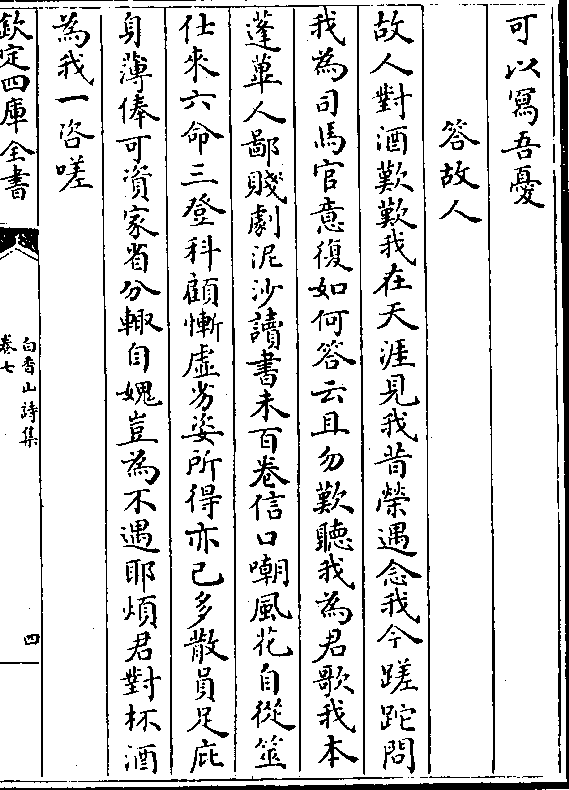 可以寫吾憂
答故人
故人對酒歎歎我在天涯見我昔榮遇念我今蹉跎問
我為司馬官意復如何答云且勿歎聽我為君歌我本
蓬蓽人鄙賤劇泥沙讀書未百卷信口嘲風花自從筮
仕來六命三登科顧慚虛劣姿所得亦已多散員足庇
身薄俸可資家省分輙自媿豈為不遇耶煩君對杯酒
為我一咨嗟
欽定四庫全書
白香山詩集
卷七
四